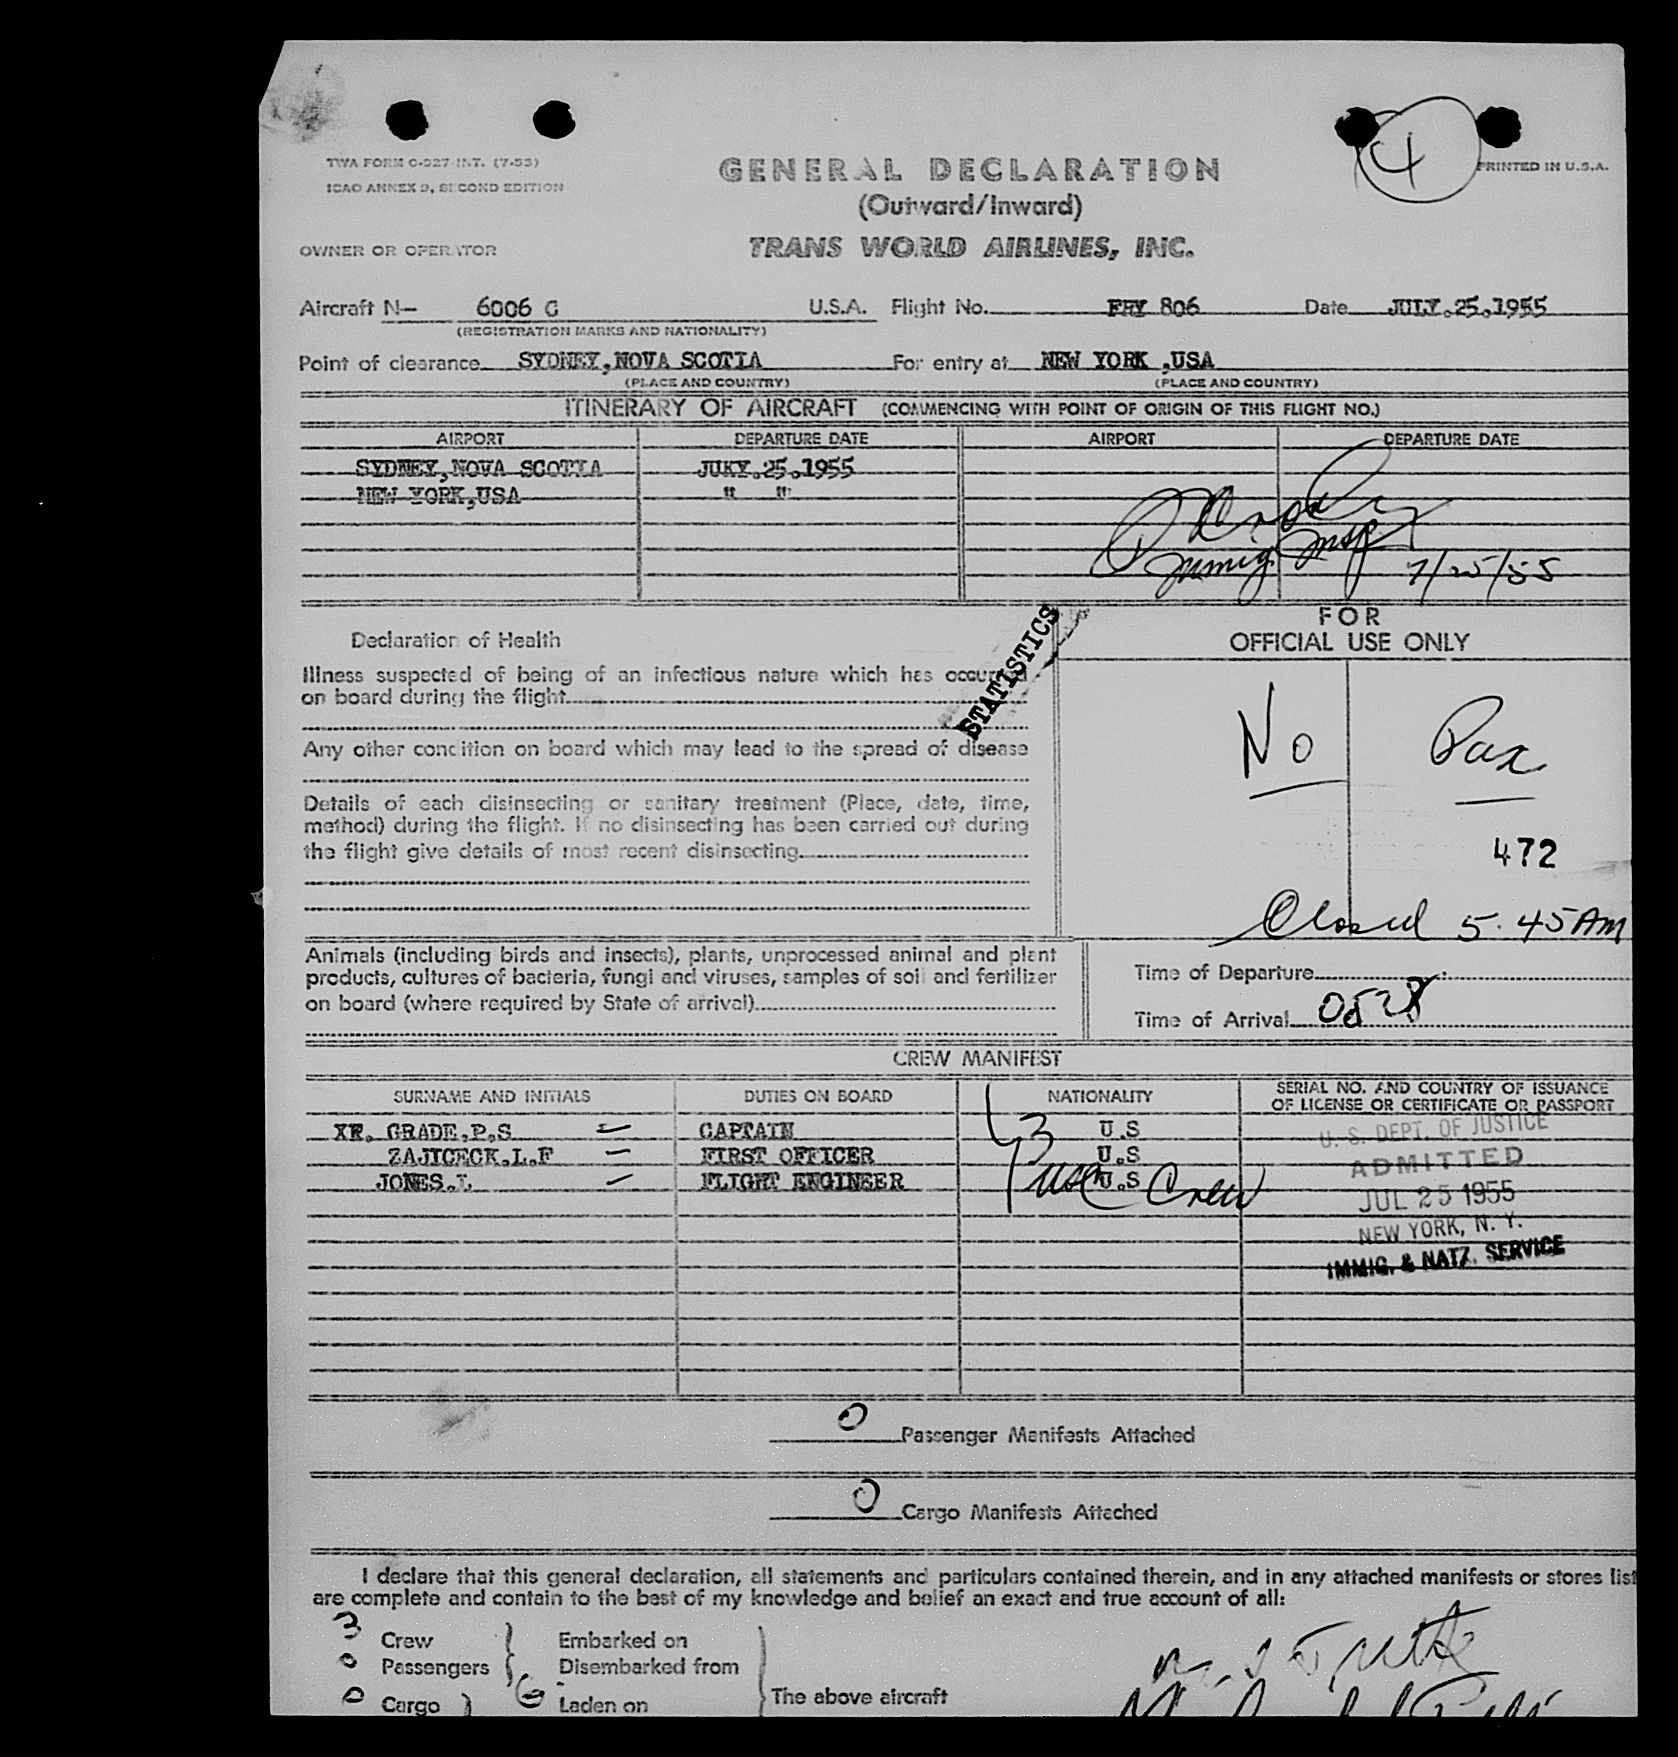 4
TWA FORM C-327-INT. (7-53)
ICAO ANNEX 9, SECOND EDITION
PRINTED IN U.S.A.
GENERAL DECLARATION
(Outward/Inward)
OWNER OR OPERATOR TRANS WORLD AIRLINES, INC.
Aircraft N- 6006 C U.S.A. Flight No. FRY 806 Date JULY.25.1955
(REGISTRATION MARKS AND NATIONALITY)
Point of clearance SYDNEY,NOVA SCOTIA For entry at NEW YORK ,USA
(PLACE AND COUNTRY) (PLACE AND COUNTRY)
ITINERARY OF AIRCRAFT (COMMENCING WITH POINT OF ORIGIN OF THIS FLIGHT NO.)
AIRPORT DEPARTURE DATE AIRPORT DEPARTURE DATE
SYDNEY,NOVA SCOTIA JUKY.25.1955
NEW YORK,USA " "
Immig Insp 7/25/55
STATISTICS
FOR
OFFICIAL USE ONLY
Declaration of Health
Illness suspected of being of an infectious nature which has occurred
on board during the flight
Any other condition on board which may lead to the spread of disease
Details of each disinsecting or sanitary treatment (Place, date, time,
method) during the flight. If no disinsecting has been carried out during
the flight give details of most recent disinsecting
No Pax
472
Closed 5.45 AM
Animals (including birds and insects), plants, unprocessed animal and plant
products, cultures of bacteria, fungi and viruses, samples of soil and fertilizer
on board (where required by State of arrival)
Time of Departure
Time of Arrival 0528
CREW MANIFEST
SURNAME AND INITIALS DUTIES ON BOARD NATIONALITY SERIAL NO. AND COUNTRY OF ISSUANCE
OF LICENSE OR CERTIFICATE OR PASSPORT
GRADE,P.S CAPTAIN U.S
ZAJICECK.L.F FIRST OFFICER U.S
JONES.L FLIGHT ENGINEER U.S
3
usc Crew
U. S. DEPT. OF JUSTICE
ADMITTED
JUL 25 1955
NEW YORK, N. Y.
IMMIG. & NATZ. SERVICE
0 Passenger Manifests Attached
0 Cargo Manifests Attached
I declare that this general declaration, all statements and particulars contained therein, and in any attached manifests or stores list
are complete and contain to the best of my knowledge and belief an exact and true account of all:
3 Crew Embarked on
0 Passengers Disembarked from
0 Cargo Laden on The above aircraft